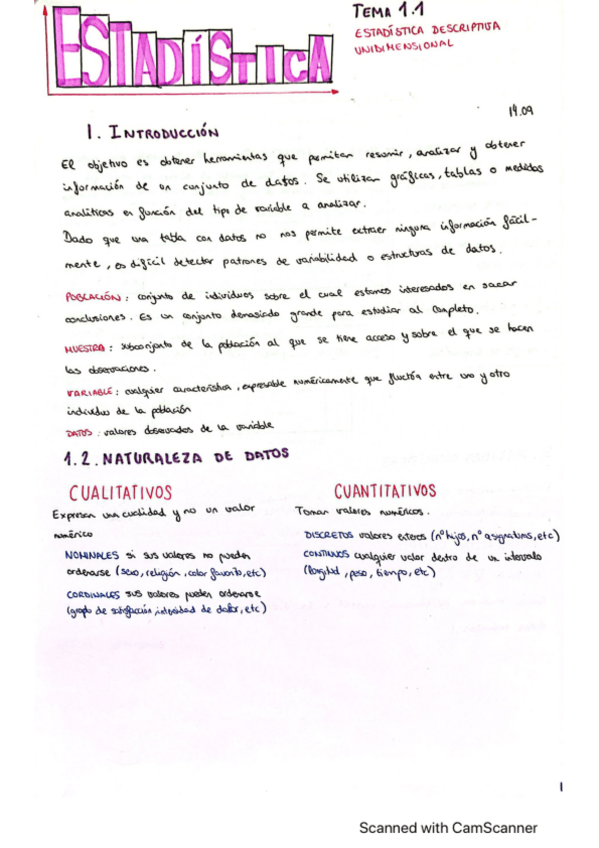 ESTADÍSTICA
TEMA 1.1
ESTADÍSTICA DESCRIPTIVA
UNIDIMENSIONAL
14.09
1. INTRODUCCIÓN
El objetivo es obtener herramientas que permitan resumir, analizar y obtener
información de un conjunto de datos. Se utilizan gráficas, tablas o medidas
analíticas en función del tipo de variable a analizar.
Dado que una tabla con datos no nos permite extraer ninguna información fácil-
mente, es difícil detectar patrones de variabilidad o estructuras de datos.
POBLACIÓN: conjunto de individuos sobre el cual estamos interesados en sacar
conclusiones. Es un conjunto demasiado grande para estudiar al completo.
MUESTRA: subconjunto de la población al que se tiene acceso y sobre el que se hacen
las observaciones.
VARIABLE: cualquier característica, expresable numéricamente que fluctúa entre uno y otro
individuo de la población
DATOS: valores observados de la variable
1.2. NATURALEZA DE DATOS
CUALITATIVOS
Expresan una cualidad y no un valor
numérico
NOMINALES si sus valores no pueden
ordenarse (sexo, religión, color favorito, etc)
CORDINALES sus valores pueden ordenarse
(grado de satisfacción, intensidad de dolor, etc)
CUANTITATIVOS
Toman valores numéricos.
DISCRETOS valores enteros (nº hijos, nº asignaturas, etc)
CONTINUOS cualquier valor dentro de un intervalo
(longitud, peso, tiempo, etc)
1
Scanned with CamScanner